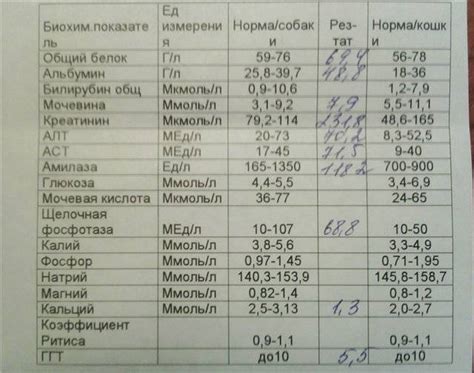 Биохим.показате
ль Ед
измерени
я Норма/собак
и Рез-
тат Норма/кошк
и
Общий белок Г/л 59-76 69,4 56-78
Альбумин Г/л 25,8-39,7 48,8 18-36
Билирубин общ Мкмоль/л 0,9-10,6 1,2-7,9
Мочевина Ммоль/л 3,1-9,2 7,9 5,5-11,1
Креатинин Мкмоль/л 79,2-114 231,8 48,6-165
АЛТ МЕд/л 20-73 40,2 8,3-52,5
АСТ МЕд/л 17-45 71,5 9-40
Амилаза Ед/л 165-1350 1182 700-900
Глюкоза Ммоль/л 4,4-5,5 3,4-6,9
Мочевая кислота Мкмоль/л 36-77 24-65
Щелочная
фосфотаза МЕд/л 10-107 68,8 10-50
Калий Ммоль/л 3,8-5,6 3,3-4,9
Фосфор Ммоль/л 0,97-1,45 0,71-1,95
Натрий Ммоль/л 140,3-153,9 145,8-158,7
Магний Ммоль/л 0,82-1,4 0,8-1,2
Кальций Ммоль/л 2,5-3,13 1,3 2,0-2,7
Коэффициент
Ритиса 0,9-1,1 0,9-1,1
ГГТ до10 5,5 до10